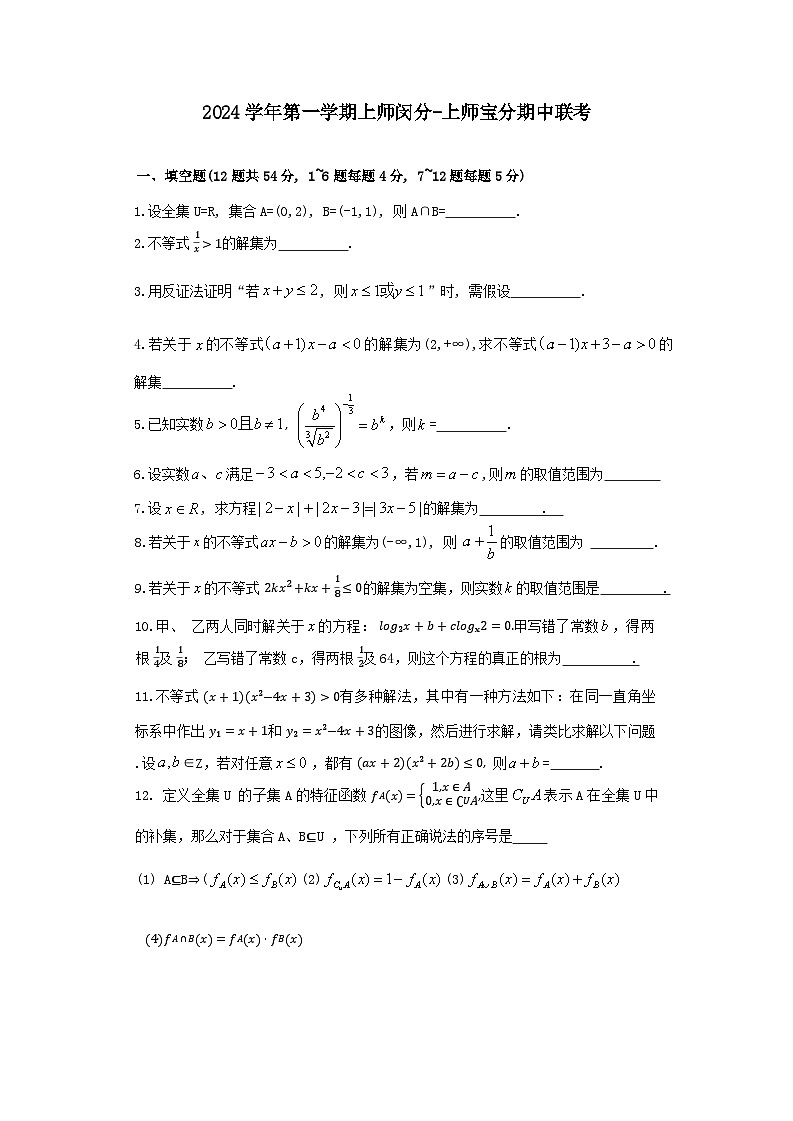 2024学年第一学期上师闵分-上师宝分期中联考
一、填空题(12题共54分, 1~6题每题4分, 7~12题每题5分)
1.设全集U=R, 集合A=(0,2), B=(-1,1), 则A∩B=__________.
2.不等式 1/x > 1的解集为__________.
3.用反证法证明“若 x+y≤2, 则 x≤1或y≤1 ”时, 需假设__________.
4.若关于 x 的不等式(a+1)x−a<0的解集为(2,+∞),求不等式(a−1)x+3−a>0的
解集__________.
5.已知实数b>0且b≠1, (b^4/∛(b^2))^(−1/3)=b^k, 则k=__________.
6.设实数a、c满足−3<a<5,−2<c<3, 若m=a−c,则m的取值范围为________
7.设 x∈R, 求方程|2−x|+|2x−3|=|3x−5|的解集为________.__
8.若关于x的不等式ax−b>0的解集为(-∞,1), 则 a+1/b 的取值范围为 _________.
9.若关于x的不等式 2kx²+kx+1/8≤0的解集为空集, 则实数k的取值范围是_________.
10.甲、 乙两人同时解关于x的方程: log₂x+b+clogₓ2=0.甲写错了常数b, 得两
根 1/4及 1/8; 乙写错了常数c, 得两根 1/2及64, 则这个方程的真正的根为__________.
11.不等式 (x+1)(x²−4x+3)>0有多种解法, 其中有一种方法如下: 在同一直角坐
标系中作出 y₁=x+1和 y₂=x²−4x+3的图像, 然后进行求解, 请类比求解以下问题
.设a,b∈Z, 若对任意x≤0, 都有 (ax+2)(x²+2b)≤0, 则a+b=_______.
12. 定义全集U 的子集A的特征函数 fA(x)={1,x∈A 0,x∈∁UA,这里C_U A表示A在全集U中
的补集, 那么对于集合A、B⊆U , 下列所有正确说法的序号是_____
(1) A⊆B⇒(f_A(x)≤f_B(x) (2)f_{C_uA}(x)=1−f_A(x) (3)f_{A∪B}(x)=f_A(x)+f_B(x)
(4)fA∩B(x)=fA(x)·fB(x)